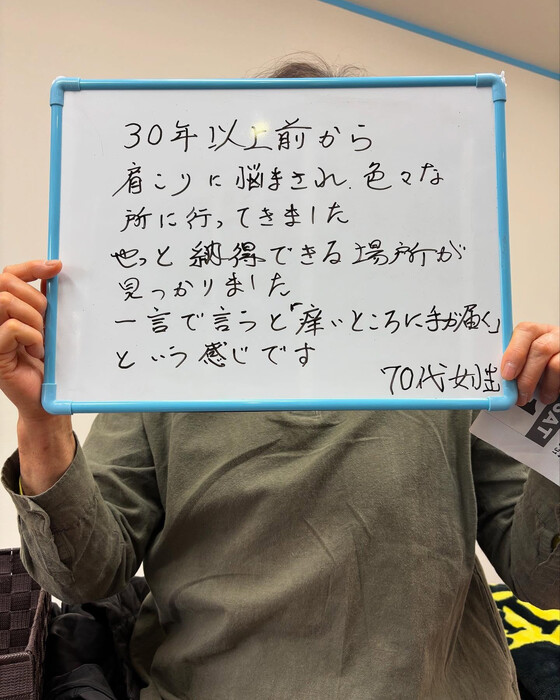 30年以上前から
肩こりに悩まされ、色々な
所に行ってきました
やっと納得できる場所が
見つかりました
一言で言うと「痒いところに手が届く」
という感じです
70代女性